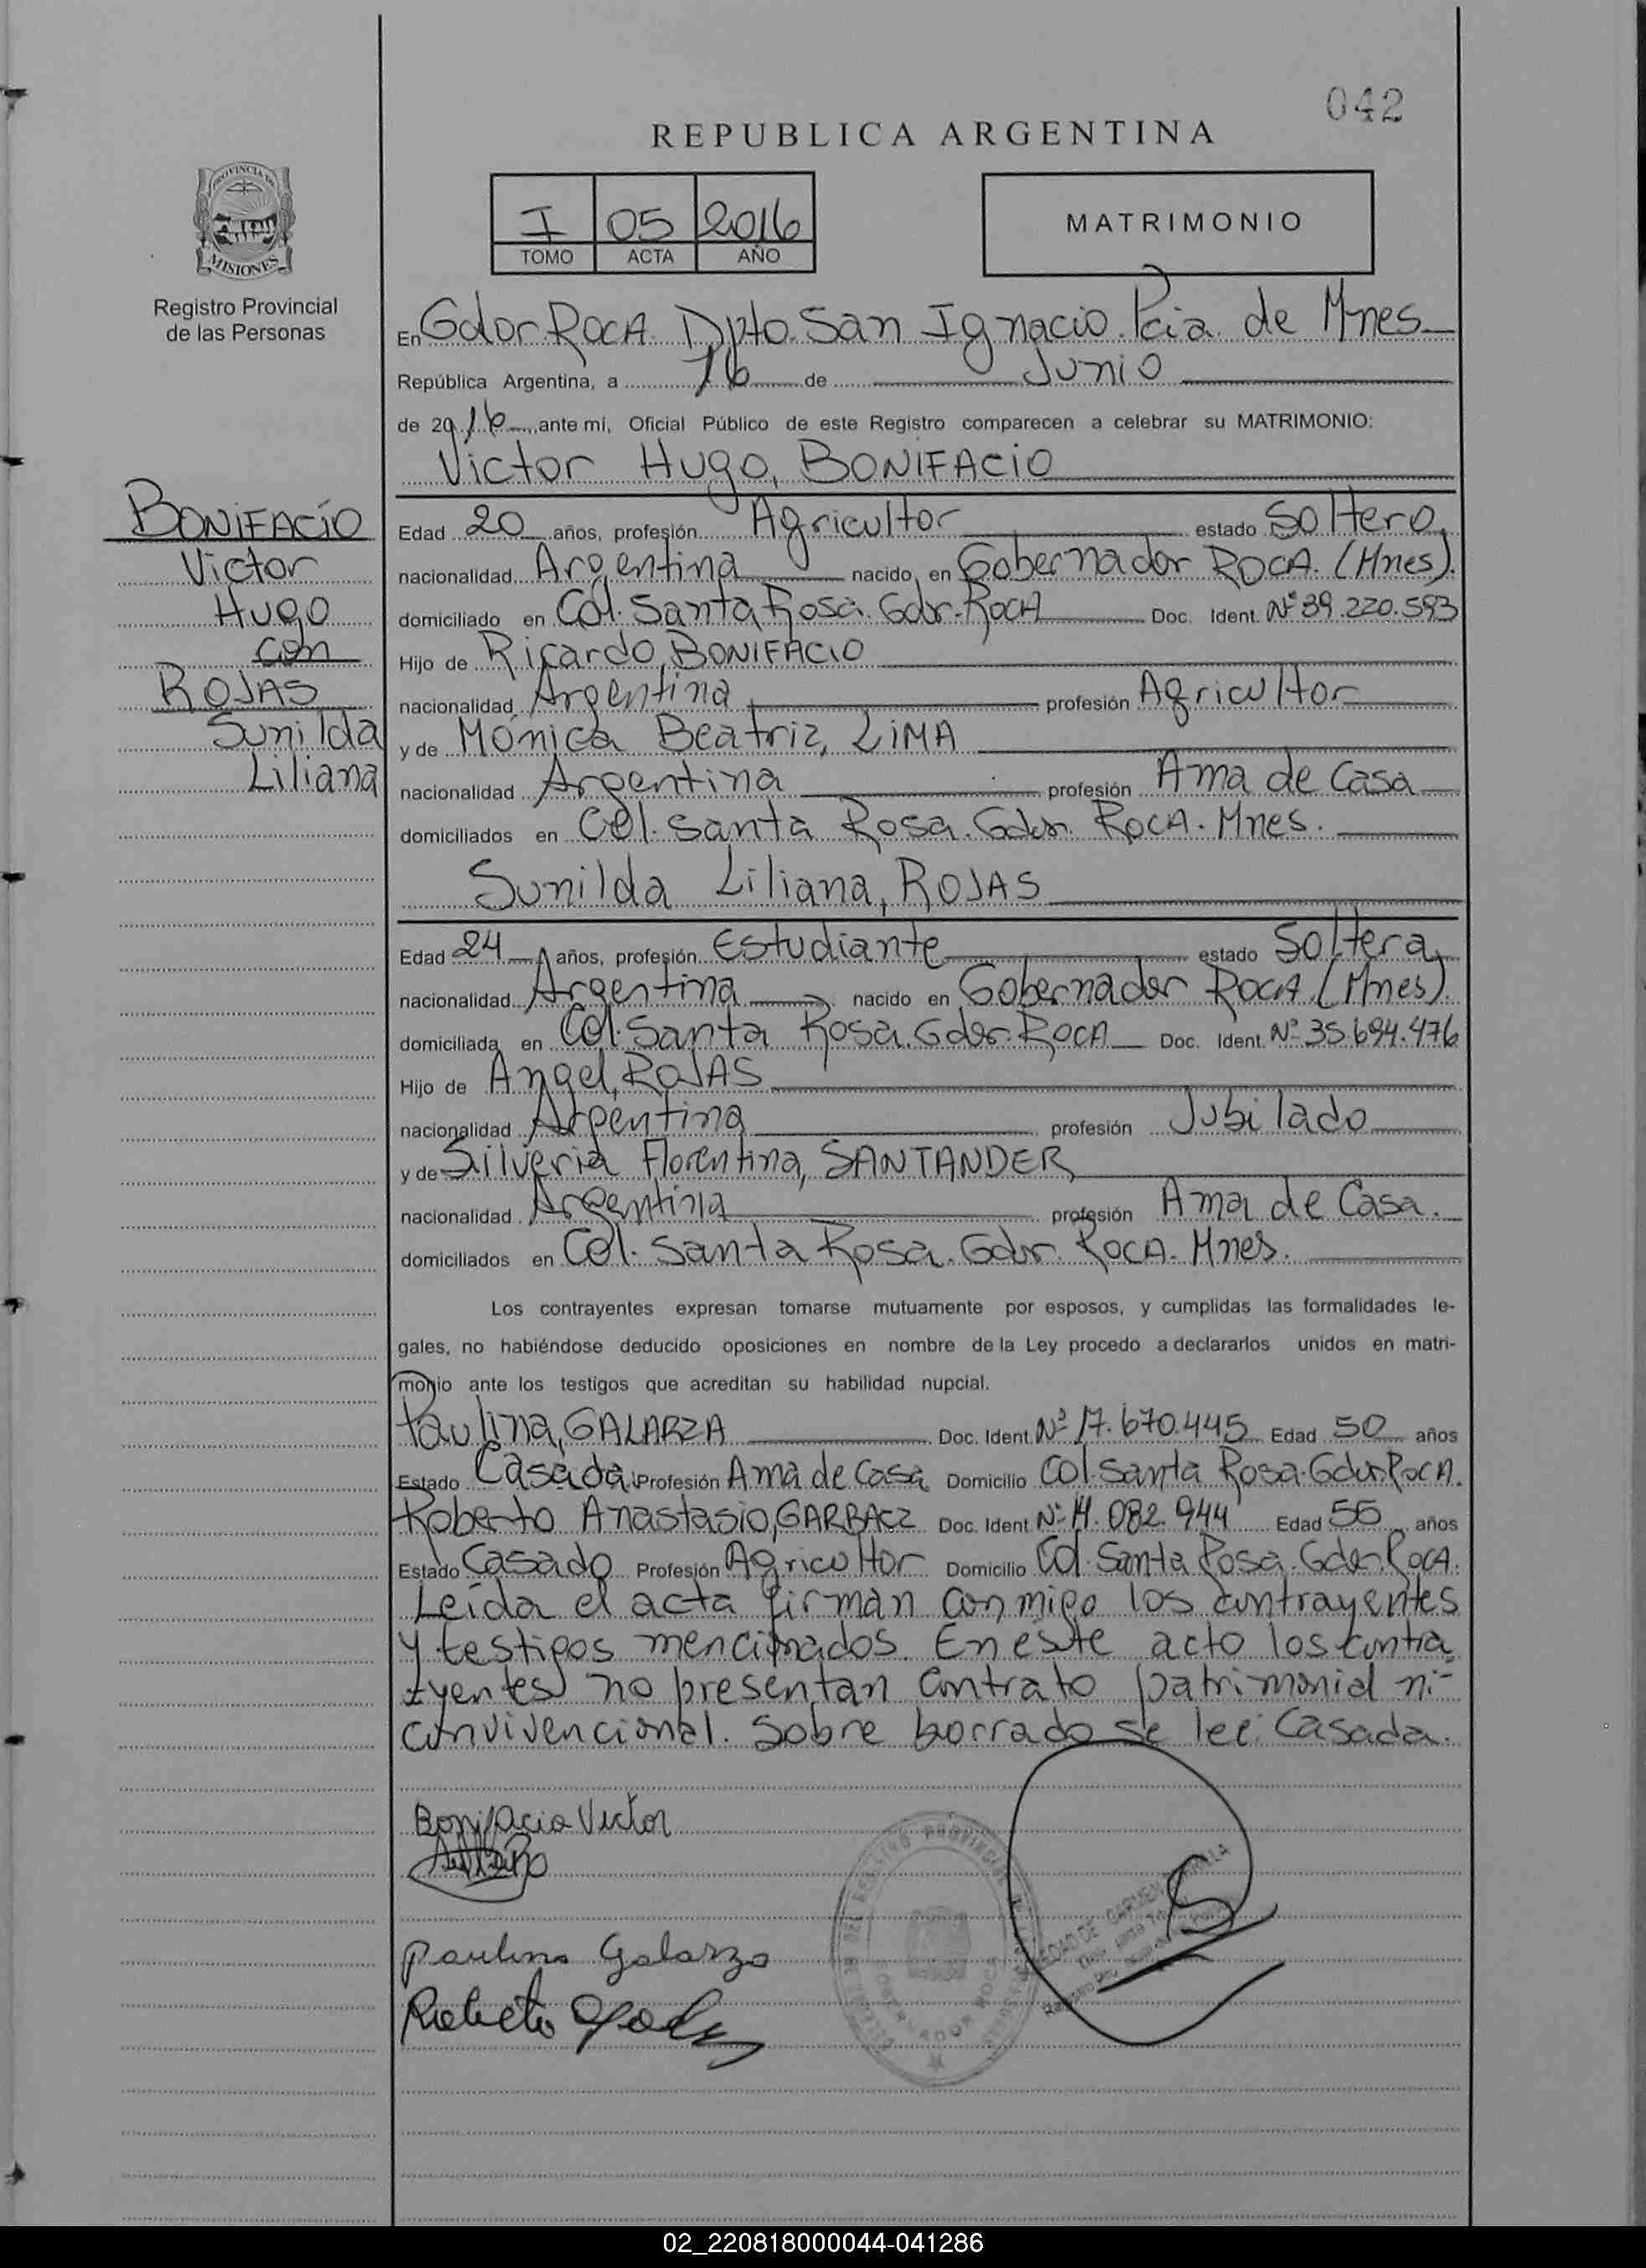 042
REPUBLICA ARGENTINA
PROVINCIA DE
MISIONES
Registro Provincial
de las Personas
I 05 2016
TOMO ACTA AÑO
MATRIMONIO
En Gdor. ROCA. Dpto. San Ignacio. Pcia. de Mnes
República Argentina, a 16 de Junio
de 2016 ante mí, Oficial Público de este Registro comparecen a celebrar su MATRIMONIO:
Victor Hugo, BONIFACIO
BONIFACIO
Victor
Hugo
con
ROJAS
Sunilda
Liliana
Edad 20 años, profesión Agricultor estado Soltero,
nacionalidad Argentina nacido en Gobernador ROCA. (Mnes).
domiciliado en Col. Santa Rosa. Gdor. ROCA Doc. Ident. Nº 39.220.593
Hijo de Ricardo, BONIFACIO
nacionalidad Argentina profesión Agricultor
y de Mónica Beatriz, LIMA
nacionalidad Argentina profesión Ama de Casa
domiciliados en Col. Santa Rosa. Gdor. ROCA. Mnes.
Sunilda Liliana, ROJAS
Edad 24 años, profesión Estudiante estado Soltera,
nacionalidad Argentina nacido en Gobernador ROCA (Mnes).
domiciliada en Col. Santa Rosa. Gdor. ROCA Doc. Ident. Nº 35.694.476
Hijo de Angel, ROJAS
nacionalidad Argentina profesión Jubilado
y de Silveria Florentina, SANTANDER
nacionalidad Argentina profesión Ama de Casa.
domiciliados en Col. Santa Rosa. Gdor. ROCA. Mnes.
Los contrayentes expresan tomarse mutuamente por esposos, y cumplidas las formalidades le-
gales, no habiéndose deducido oposiciones en nombre de la Ley procedo a declararlos unidos en matri-
monio ante los testigos que acreditan su habilidad nupcial.
Paulina, GALARZA Doc. Ident. Nº 17.670.445 Edad 50 años
Estado Casada Profesión Ama de Casa Domicilio Col. Santa Rosa. Gdor. ROCA.
Roberto Anastasio, GARBACZ Doc. Ident. Nº 14.082.944 Edad 55 años
Estado Casado Profesión Agricultor Domicilio Col. Santa Rosa. Gdor. ROCA.
Leída el acta firman conmigo los contrayentes
y testigos mencionados. En este acto los contra
yentes no presentan contrato patrimonial ni-
convivencional. Sobre borrado se lee: Casada.
Bonifacio Victor
Paulina Galarza
Roberto
02_220818000044-041286